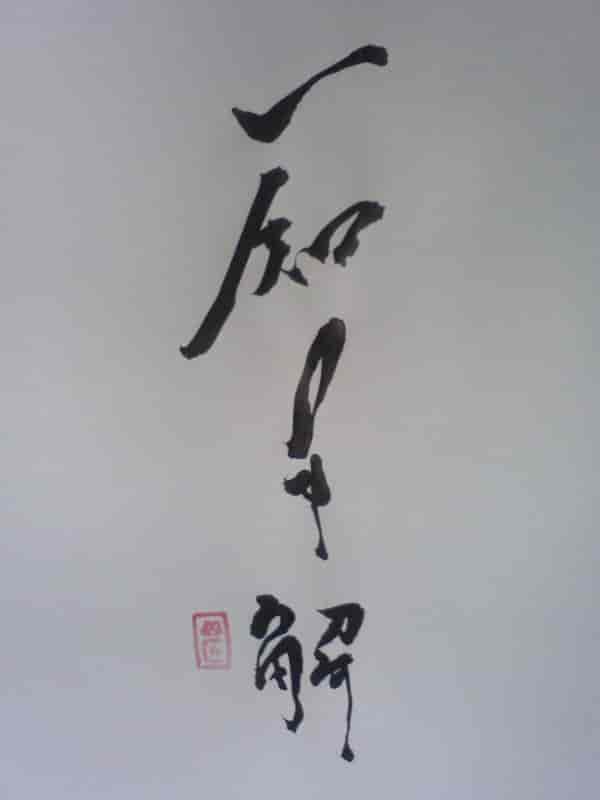 一知半解